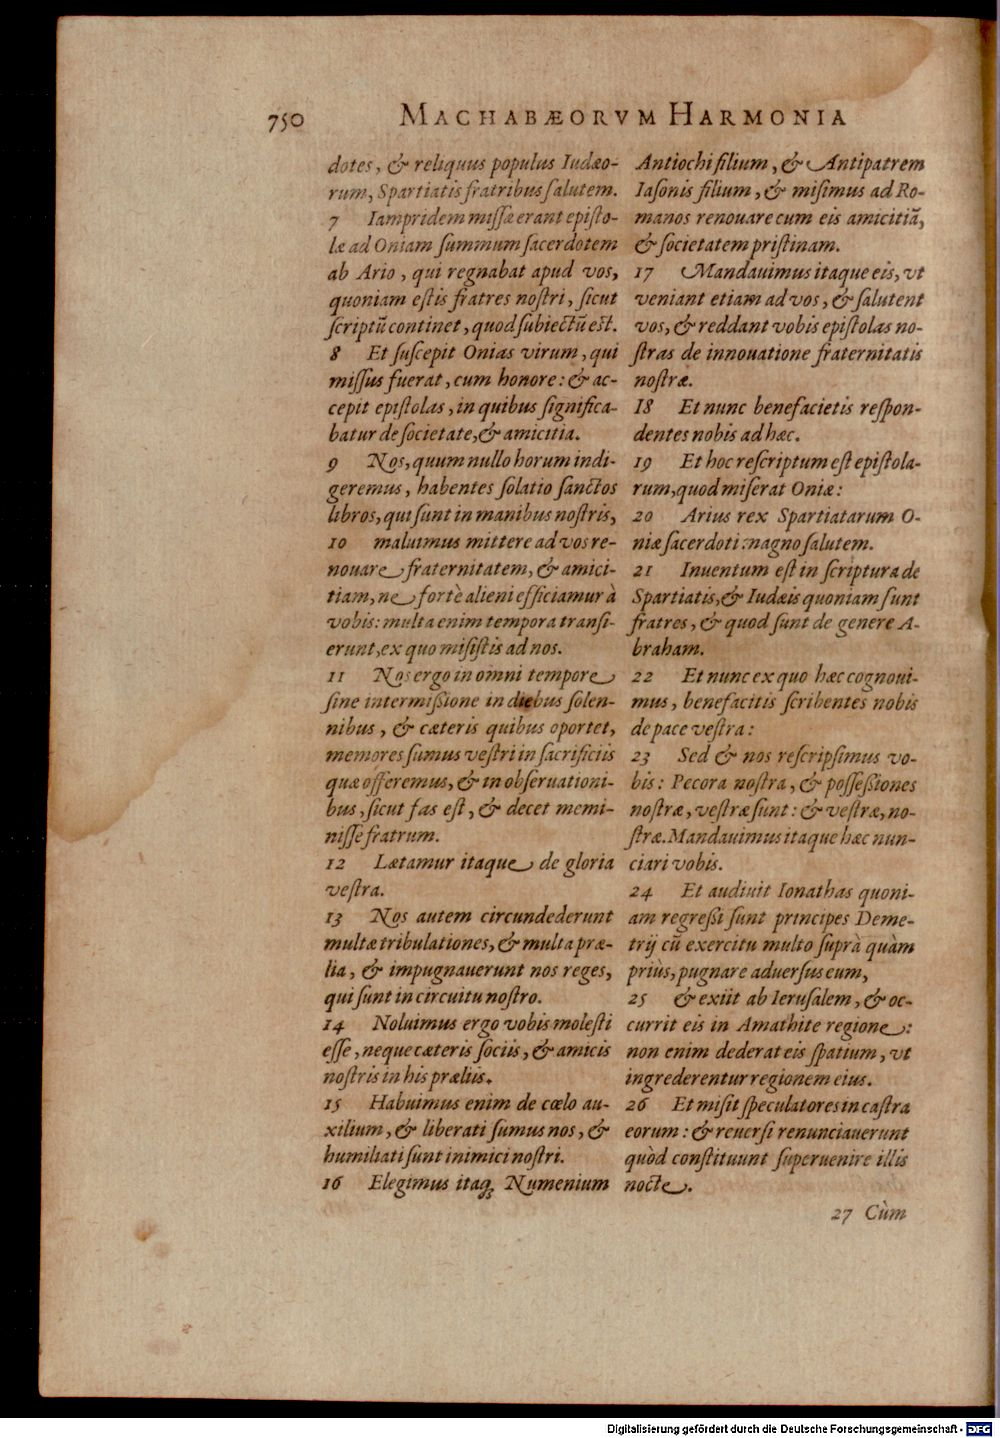 750 MACHABÆORVM HARMONIA
dotes, & reliquus populus Iudæo-
rum, Spartiatis fratribus ſalutem.
7 Iampridem miſſæ erant epiſto-
læ ad Oniam ſummum ſacerdotem
ab Ario, qui regnabat apud vos,
quoniam eſtis fratres noſtri, ſicut
ſcriptū continet, quod ſubiectū eſt.
8 Et ſuſcepit Onias virum, qui
miſſus fuerat, cum honore: & ac-
cepit epiſtolas, in quibus ſignifica-
batur de ſocietate, & amicitia.
9 Nos, quum nullo horum indi-
geremus, habentes ſolatio ſanctos
libros, qui ſunt in manibus noſtris,
10 maluimus mittere ad vos re-
nouare fraternitatem, & amici-
tiam, ne fortè alieni efficiamur à
vobis: multa enim tempora tranſi-
erunt, ex quo miſiſtis ad nos.
11 Nos ergo in omni tempore
ſine intermißione in diebus ſolen-
nibus, & cæteris quibus oportet,
memores ſumus veſtri in ſacrificiis
quæ offeremus, & in obſeruationi-
bus, ſicut fas eſt, & decet memi-
niſſe fratrum.
12 Lætamur itaque de gloria
veſtra.
13 Nos autem circundederunt
multæ tribulationes, & multa præ-
lia, & impugnauerunt nos reges,
qui ſunt in circuitu noſtro.
14 Noluimus ergo vobis moleſti
eſſe, neque cæteris ſociis, & amicis
noſtris in his præliis.
15 Habuimus enim de cœlo au-
xilium, & liberati ſumus nos, &
humiliati ſunt inimici noſtri.
16 Elegimus itaq; Numenium
Antiochi filium, & Antipatrem
Iaſonis filium, & miſimus ad Ro-
manos renouare cum eis amicitiā,
& ſocietatem priſtinam.
17 Mandauimus itaque eis, vt
veniant etiam ad vos, & ſalutent
vos, & reddant vobis epiſtolas no-
ſtras de innouatione fraternitatis
noſtræ.
18 Et nunc benefacietis reſpon-
dentes nobis ad hæc.
19 Et hoc reſcriptum eſt epiſtola-
rum, quod miſerat Oniæ:
20 Arius rex Spartiatarum O-
niæ ſacerdoti magno ſalutem.
21 Inuentum eſt in ſcriptura de
Spartiatis, & Iudæis quoniam ſunt
fratres, & quod ſunt de genere A-
braham.
22 Et nunc ex quo hæc cognoui-
mus, benefacitis ſcribentes nobis
de pace veſtra:
23 Sed & nos reſcripſimus vo-
bis: Pecora noſtra, & poſſeßiones
noſtræ, veſtræ ſunt: & veſtræ, no-
ſtræ. Mandauimus itaque hæc nun-
ciari vobis.
24 Et audiuit Ionathas quoni-
am regreßi ſunt principes Deme-
trij cū exercitu multo ſuprà quàm
priùs, pugnare aduerſus eum,
25 & exiit ab Ieruſalem, & oc-
currit eis in Amathite regione:
non enim dederat eis ſpatium, vt
ingrederentur regionem eius.
26 Et miſit ſpeculatores in caſtra
eorum: & reuerſi renunciauerunt
quòd conſtituunt ſuperuenire illis
nocte.
27 Cùm
Digitalisierung gefördert durch die Deutsche Forschungsgemeinschaft - DFG